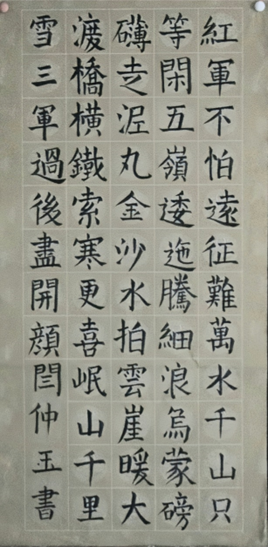 紅軍不怕遠征難萬水千山只
等閑五嶺逶迤騰細浪烏蒙磅
礴走泥丸金沙水拍雲崖暖大
渡橋橫鐵索寒更喜岷山千里
雪三軍過後盡開顔閆仲玉書